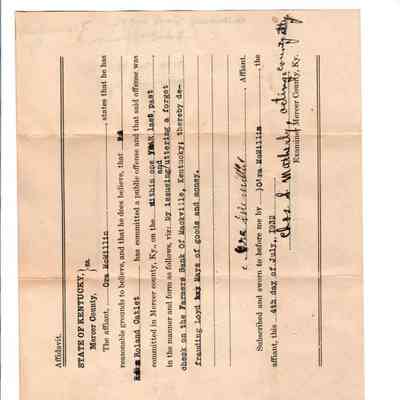 Affidavit.
STATE OF KENTUCKY, } ss.
Mercer County.
The affiant, Ora McMillin, states that he has
reasonable grounds to believe, and that he does believe, that
Roland Catlet has committed a public offense and that said offense was
committed in Mercer county, Ky., on the within one year last past
and
in the manner and form as follows, viz: by issueing/uttering a forget
check on the Farmers Bank Of Mackville, Kentucky; thereby de-
frauding Loyd Mays of goods and money.
Ora McMillin Affiant.
Subscribed and sworn to before me by Ora McMillin, the
affiant, this 4th day of July, 1932
Chas. I. acting county atty
Examiner Mercer County, Ky.